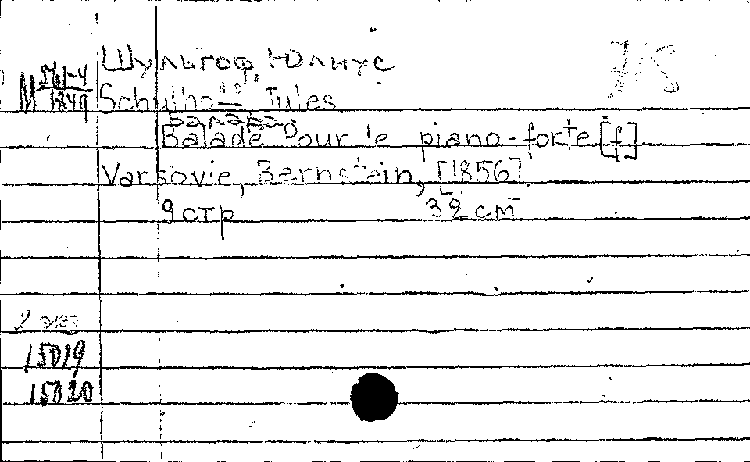 Шульгоф, Юлиус
М 561-4
1849
Schulhoff Jules
Баллада
Balade pour le piano-forte [f]
Varsovie, Bernstein, [1856]
9 стр 32 cm
2 экз
15019
15020